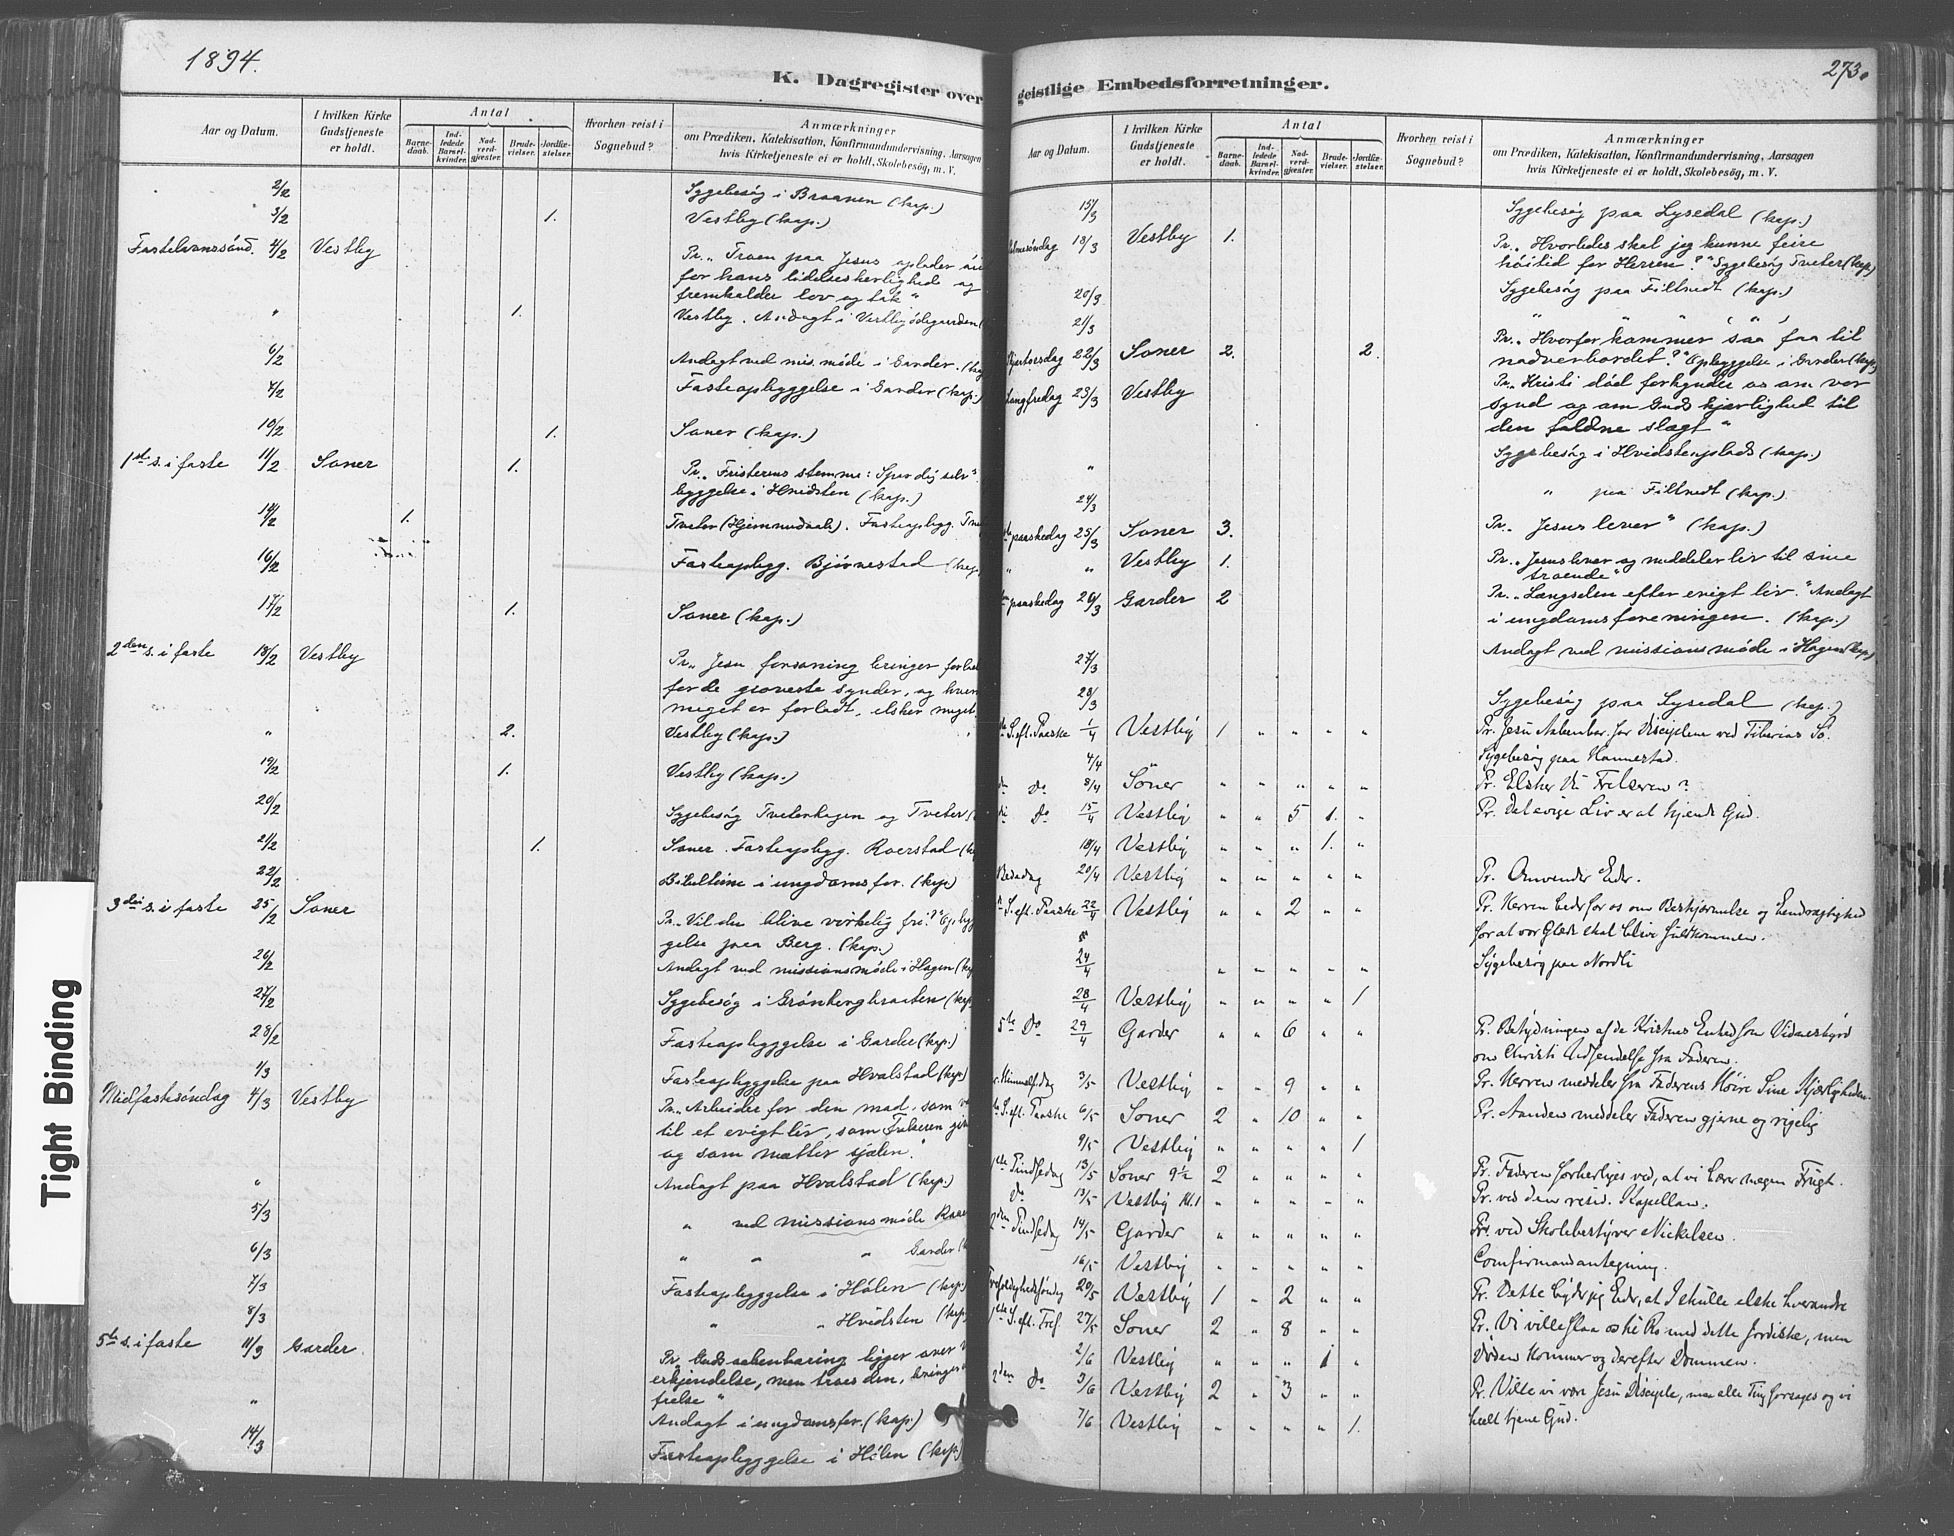 1894.
K. Dagregister over
Aar og Datum.
I hvilken Kirke Gudstjeneste er holdt.
Antal
Barnedaab.
Indledede Barselkvinder.
Nadverdgjester.
Brudevielser.
Jordfæstelser.
Hvorhen reist i Sognebud?
Anmærkninger
om Prædiken, Katekisation, Konfirmandundervisning, Aarsagen
hvis Kirketjeneste ei er holdt, Skolebesøg, m. V.
2/2 Sygebesøg i Braanen (kap.)
3/2 1. Vestby (kap.)
Fastelavnssønd. 4/2 Vestby Pr. „Troen paa Jesus oplader
for hans lidelsesherlighed og
fremkalder lov og tak"
" 1. Vestby. Andagt i Vestbyødegaarden
6/2 Andagt ved mis. møde i Garder.
7/2 Fasteopbyggelse i Garder (kap.)
10/2 1. Soner (kap.)
1ste s. i faste 11/2 Soner 1. Pr. „Fristerens stemme: Spar dig selv"
byggelse i Hvidsten (kap.)
14/2 1. Tveter (Hjemmedaab). Fasteopbygg.
16/2 Fasteopbygg. Bjørnestad
17/2 1. Soner (kap.)
2den s. i faste 18/2 Vestby Pr. „Jesu forsoning bringer
for de groveste synder, og hvem
meget er forladt, elsker meget.
" 2. Vestby (kap.)
19/2 1. Vestby (kap.)
20/2 Sygebesøg Tveterhagen og Tveter
21/2 1. Soner. Fasteopbygg. Roerstad
22/2 Bibeltime i ungdomsfor. (kap)
3die s. i faste 25/2 Soner Pr. „Vil du blive virkelig fri?"
gelse paa Berg. (kap.)
26/2 Andagt ved missionsmøde i Hagen
27/2 Sygebesøg i Grønbergbraaten (kap
28/2 Fasteopbyggelse i Garder (kap.)
1/3 Fasteopbyggelse paa Hvalstad (kap)
Midfastesøndag 4/3 Vestby Pr. „Arbeider for den mad, som
til et evigt liv, som Frelseren
og som mætter sjælen."
" Andagt paa Hvalstad (kap.)
5/3 " ved missionsmøde
6/3 " " " Garder
7/3 Fasteopbyggelse i Hølen (kap.)
8/3 " " Hvidsten (kap)
5te s. i faste 11/3 Garder. Pr. „Guds aabenbaring ligger over
erkjendelse, men troes den, bringer
frelse"
" Andagt i ungdomsfor. (kap.)
14/3 Fasteopbyggelse i Hølen (kap.)
geistlige Embedsforretninger.
273.
Aar og Datum.
I hvilken Kirke Gudstjeneste er holdt.
Antal
Barnedaab.
Indledede Barselkvinder.
Nadverdgjester.
Brudevielser.
Jordfæstelser.
Hvorhen reist i Sognebud?
Anmærkninger
om Prædiken, Katekisation, Konfirmandundervisning, Aarsagen
hvis Kirketjeneste ei er holdt, Skolebesøg, m. V.
15/3 Sygebesøg paa Lysedal (kap.)
Palmesøndag 18/3 Vestby 1. Pr. „Hvorledes skal jeg kunne feire
høitid for Herren?" Sygebesøg Tveter (kap.)
20/3 Sygebesøg paa Filtvedt (kap.)
21/3 " " " "
Skjærtorsdag 22/3 Soner 2. 2. Pr. „Hvorfor kommer saa faa til
nadverbordet?" Opbyggelse i Garder (kap)
Langfredag 23/3 Vestby Pr. „Kristi død forkynder os om vor
synd og om Guds kjærlighed til
den faldne slægt"
" Sygebesøg i Hvidstenplads (kap.)
24/3 " paa Filtvedt (kap.)
paaskedag 25/3 Soner 3. Pr. „Jesus lever" (kap.)
" " Vestby 1. Pr. „Jesus lever og meddeler liv til sine
troende"
paaskedag 26/3 Garder 2 Pr. „Længselen efter evigt liv." Andagt
i ungdomsforeningen. (kap.)
27/3 Andagt ved missionsmøde i Hagen (kap.)
28/3 Sygebesøg paa Lysedal (kap.)
S. eft. Paaske 1/4 Vestby 1 " " " " Pr. Jesu Aabenbar. for Disciplene ved Tiberias Sø.
4/4 Sygebesøg paa Hannestad.
Do 8/4 Soner " " " " " Pr. Elsker Vi Frelseren?
Do 15/4 Vestby " " 5 1. " Pr. Det evige Liv er at kjende Gud.
18/4 Vestby " " " 1. "
Bededag 20/4 Vestby " " " " " Pr. Omvender Eder.
S. eft. Paaske 22/4 Vestby " " 2 " " Pr. Herren beder for os om Beskjærmelse og Eendrægtighed
for at vor Glæde skal blive fuldkommen.
24/4 " " " " " Sygebesøg paa Nordli
28/4 Vestby " " " " 1
5te Do 29/4 Garder " " 6 " " Pr. Betydningen af de Kristnes Enhed som Vidnesbyrd
om Christi Udsendelse fra Faderen.
Himmelfdag 3/5 Vestby " " 9 " " Pr. Herren meddeler fra Faderens Høire Sine Kjærligheden
S. eft. Paaske 6/5 Soner 2 " 10 " " Pr. Aanden meddeler Faderen gjerne og rigelig
9/5 Vestby " " " " 1
1ste Pindsedag 13/5 Soner 9½ 2 " " " " Pr. Faderen forherliges ved, at vi bærer megen Frugt.
do 13/5 Vestby Kl. 1 " " " " " Pr. ved den resid. Kapellan.
2den Pindsedag 14/5 Garder " " " " " Pr. ved Skolebestyrer Nickelsen.
16/5 Vestby " " " " " Confirmandantegning.
Trefoldighedssøndag 20/5 Vestby 1 " 2 " " Pr. Dette byder jeg Eder, at I skulle elske hverandre
1ste S. eft. Tref. 27/5 Soner 2 " 8 " " Pr. Vi ville slaa os til Ro med dette Jordiske, men
Døden kommer og derefter Dommen.
2/6 Vestby " " " 1 "
2den Do 3/6 Vestby 2 " 3 " " Pr. Ville vi være Jesu Disciple, maa alle Ting forsages og vi
heelt tjene Gud.
7/6 Vestby " " " " 1.
Tight Binding